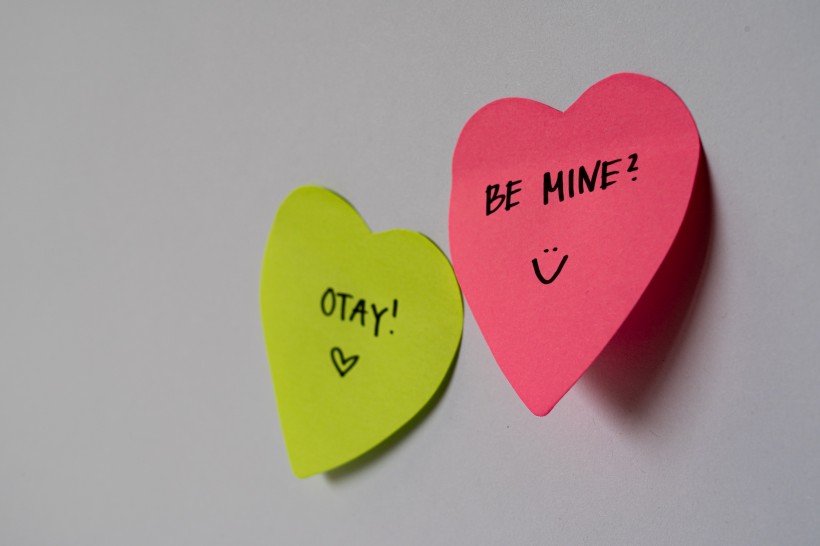 BE MINE?
OTAY!